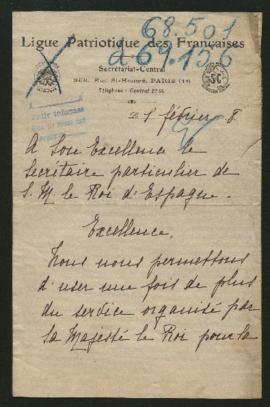 68.501
a 69.155
Ligue Patriotique des Françaises
Secrétariat-Central
368, Rue St-Honoré, PARIS (1er)
Téléphone : Central
SC
21 février 8.
A Son Excellence le
Secrétaire particulier de
S. M. le Roi d'Espagne.
Excellence,
Nous nous permettons
d'user une fois de plus
du service organisé par
Sa Majesté le Roi pour la